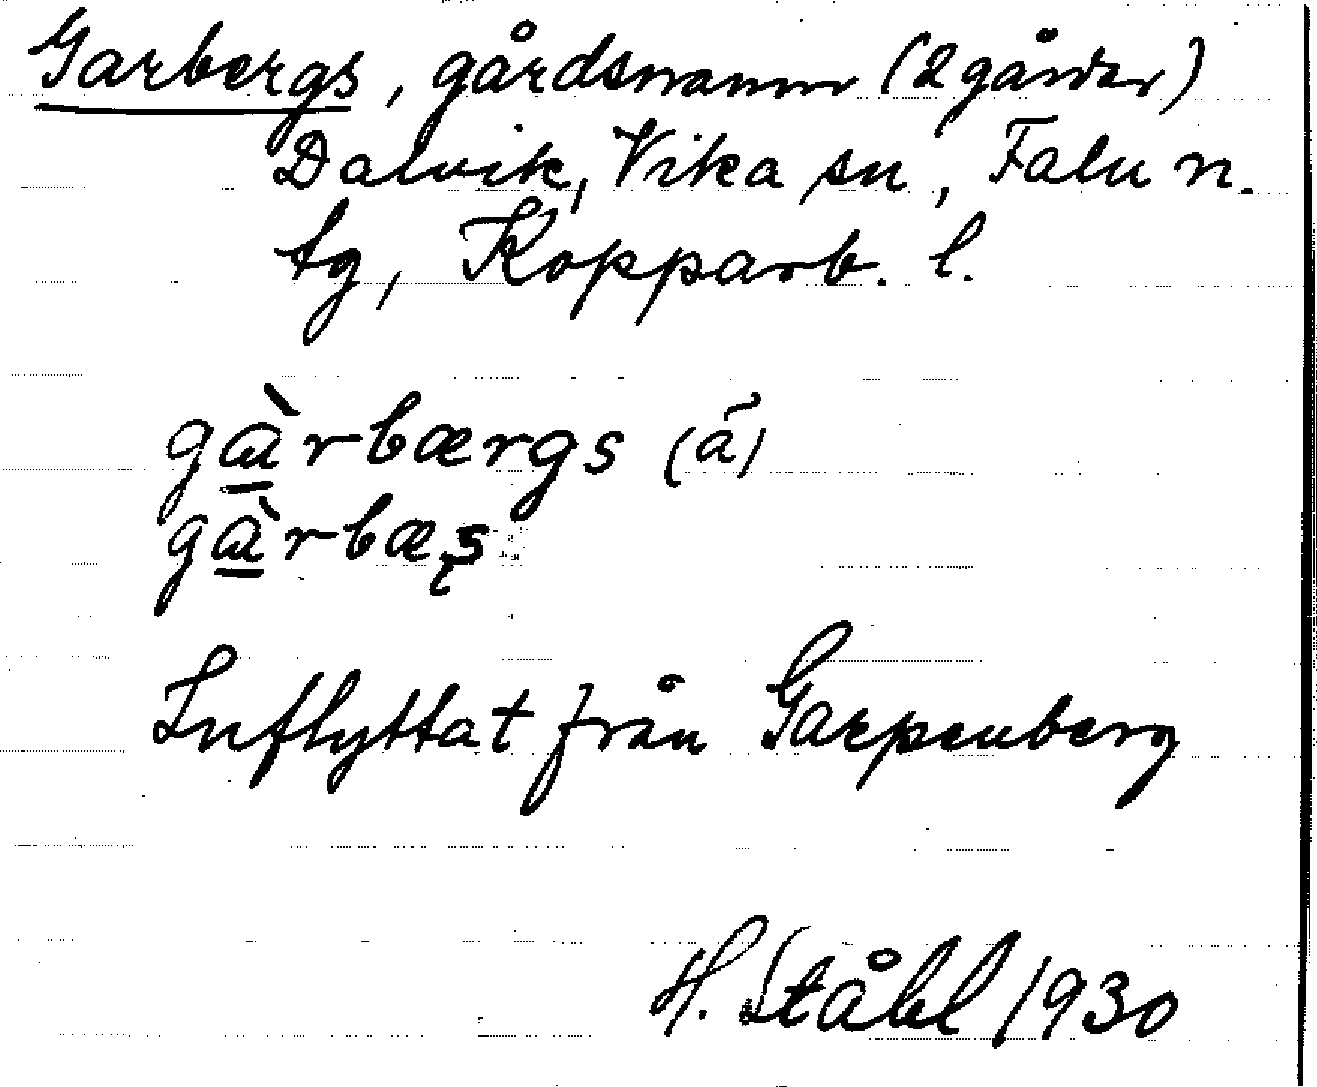 Garbergs, gårdsnamn (2 gårdar)
Dalvik, Vika sn, Falu n.
tg, Kopparb. l.
gàrbærgs (ã)
gàrbæş
Inflyttat från Garpenberg
H. Ståhl 1930